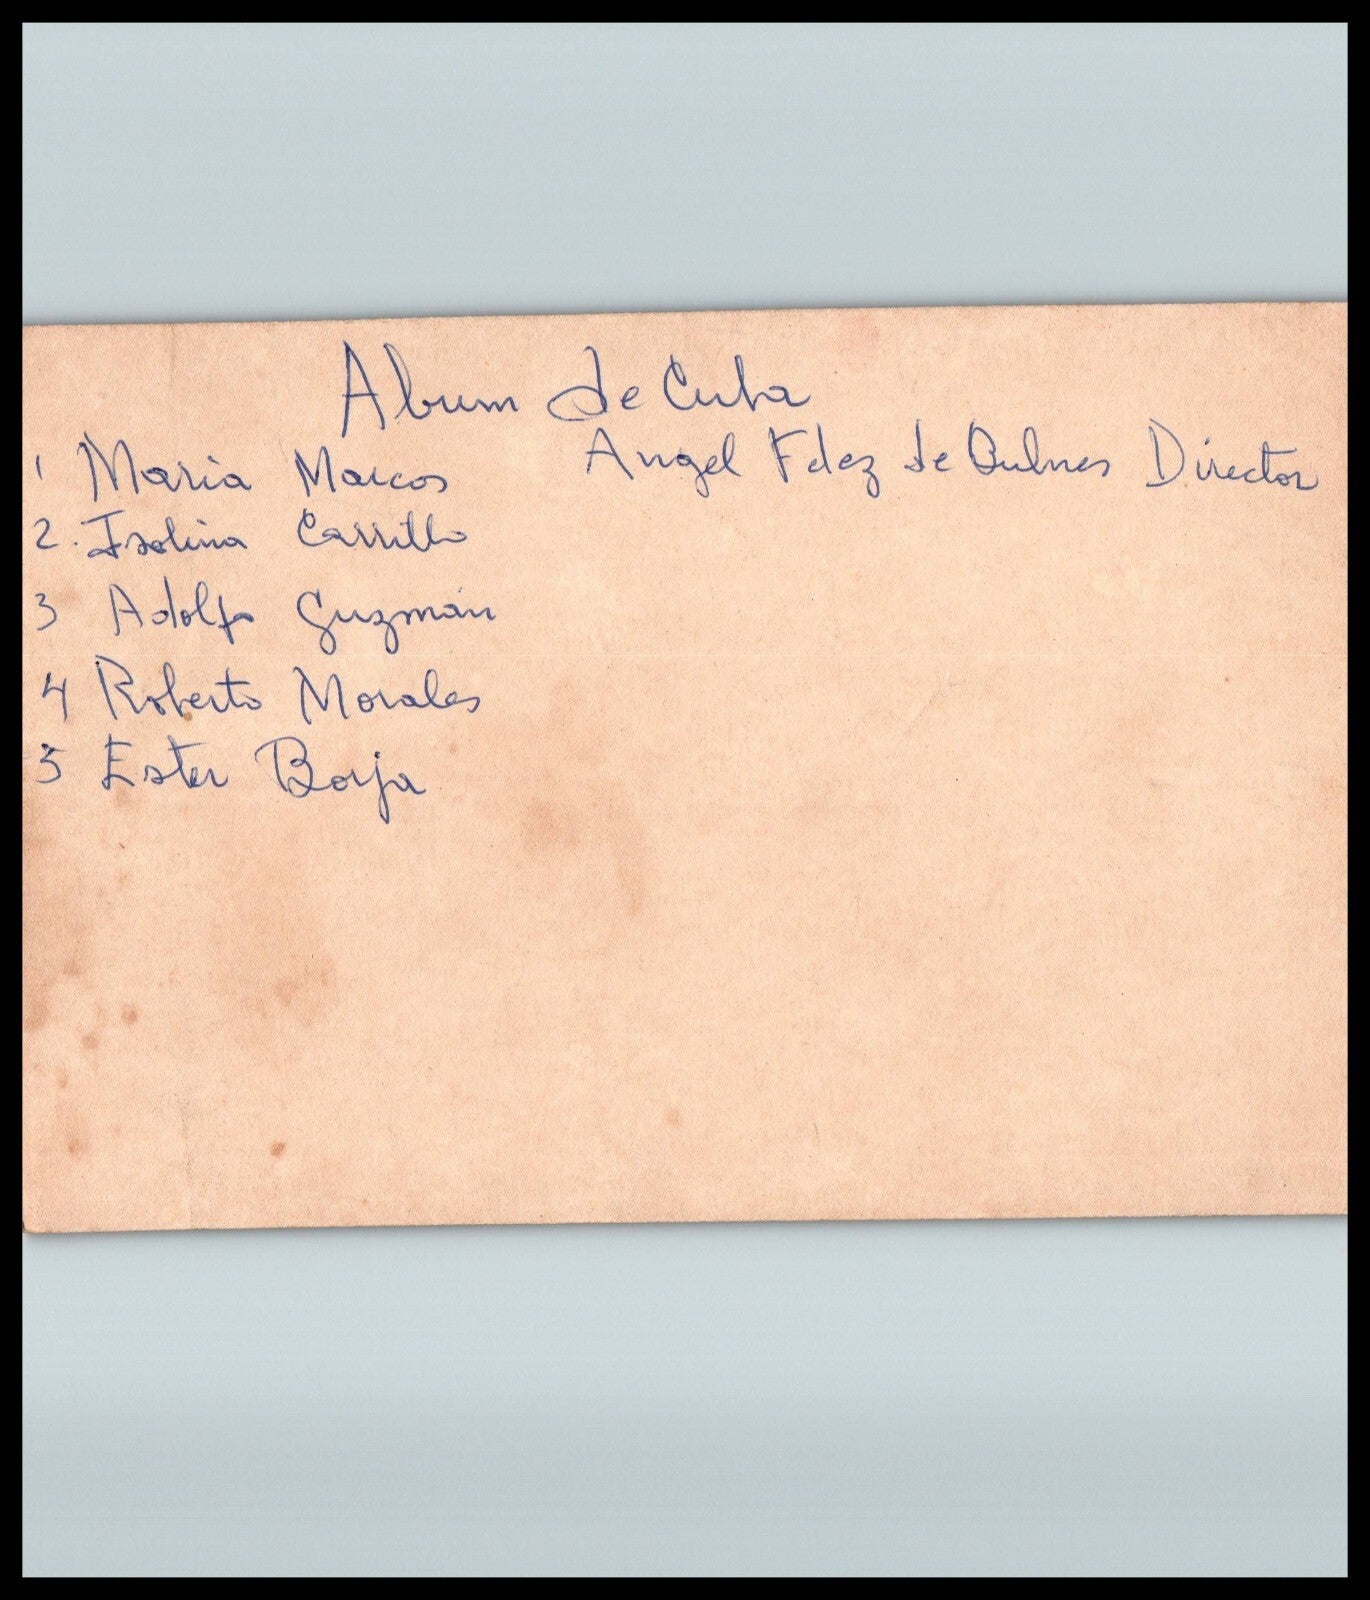 Album de Cuba
Angel Fdez de Bulnes Director
1 Maria Marcos
2. Isolina Carrillo
3 Adolfo Guzmán
4 Roberto Morales
5 Ester Borja